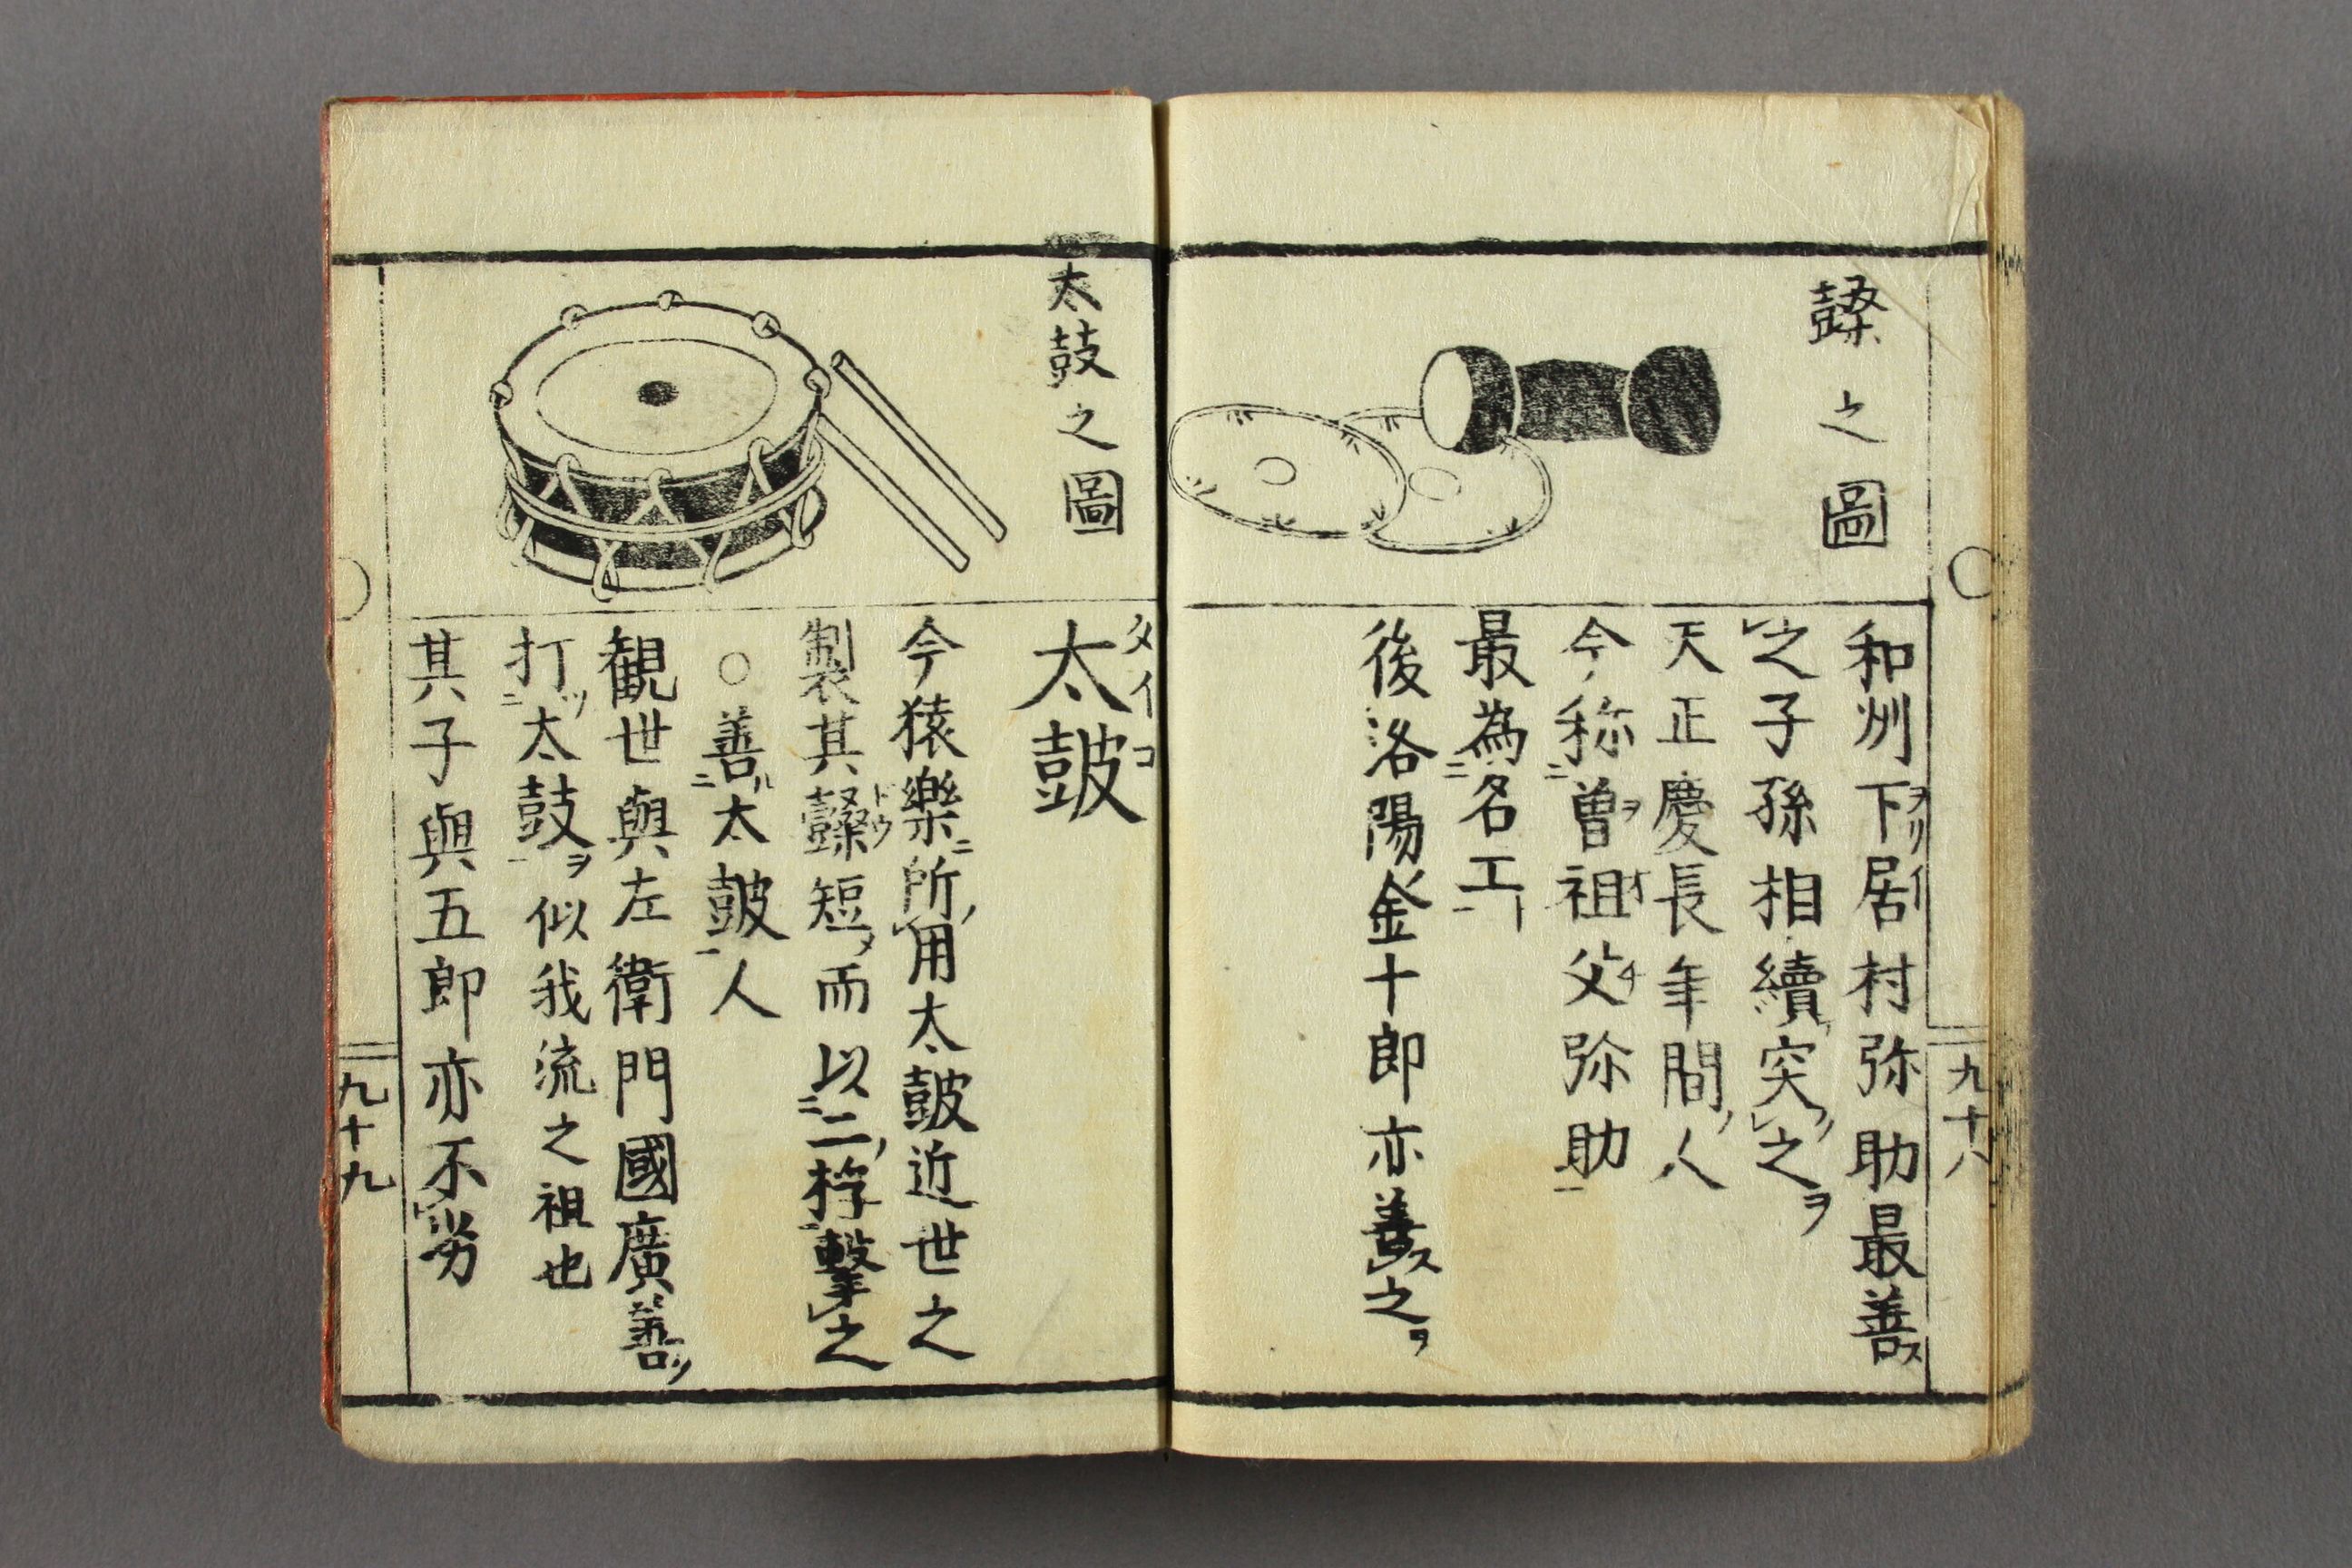 鼕之圖
和州下居村弥助最善
之子孫相續突之
天正慶長年間人
今称曽祖父弥助
最為名工
後洛陽金十郎亦善之
九十八
太鼓之圖
太皷
タイコ
今猿樂所用太皷近世之
製其鼕短而以二桴擊之
○善太皷人
観世與左衛門國廣善
打太鼓似我流之祖也
其子與五郎亦不劣
九十九